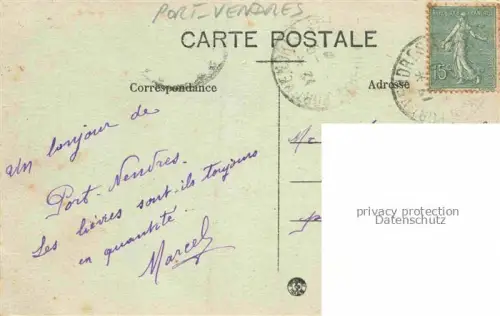 PORT-VENDRES
CARTE POSTALE
Correspondance
Adresse
15c
Un bonjour de
Port-Vendres.
Les lièvres sont-ils toujours
en quantité...
Marcel
privacy protection
Datenschutz